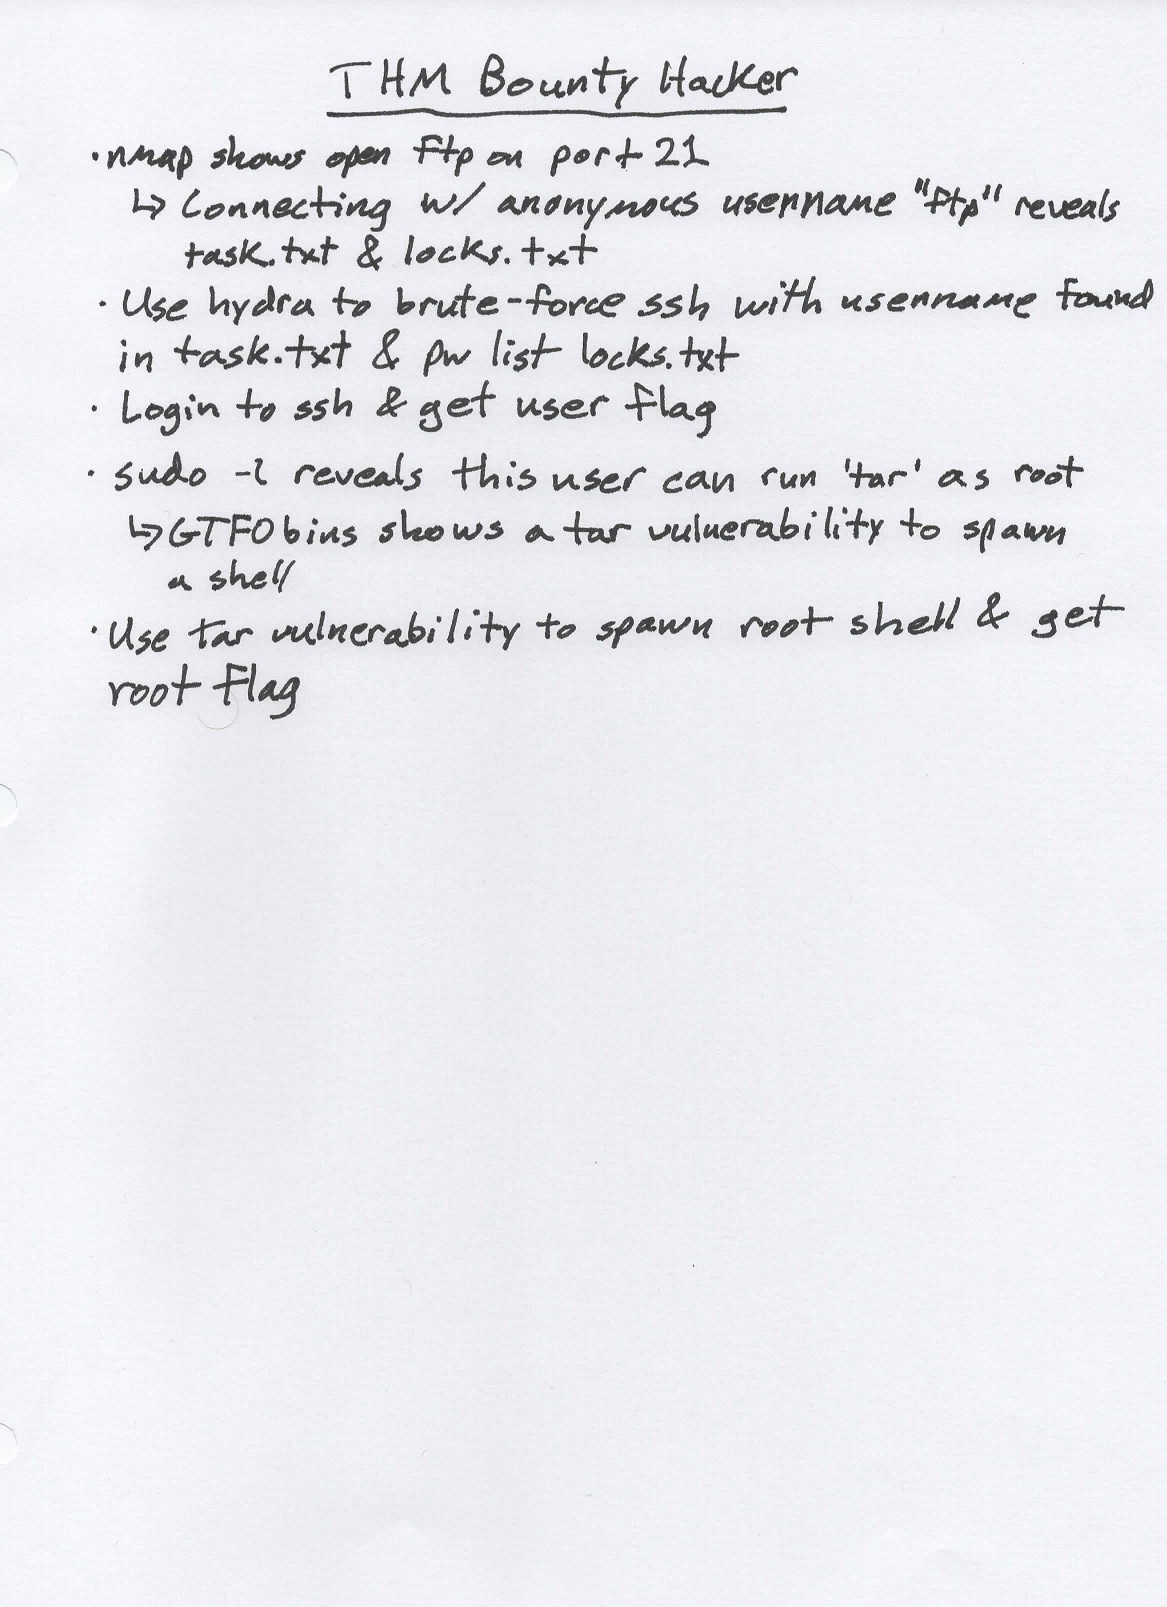 THM Bounty Hacker
· nmap shows open ftp on port 21
↳ Connecting w/ anonymous username "ftp" reveals
task.txt & locks.txt
· Use hydra to brute-force ssh with username found
in task.txt & pw list locks.txt
· Login to ssh & get user flag
· sudo -l reveals this user can run 'tar' as root
↳ GTFO bins shows a tar vulnerability to spawn
a shell
· Use tar vulnerability to spawn root shell & get
root flag